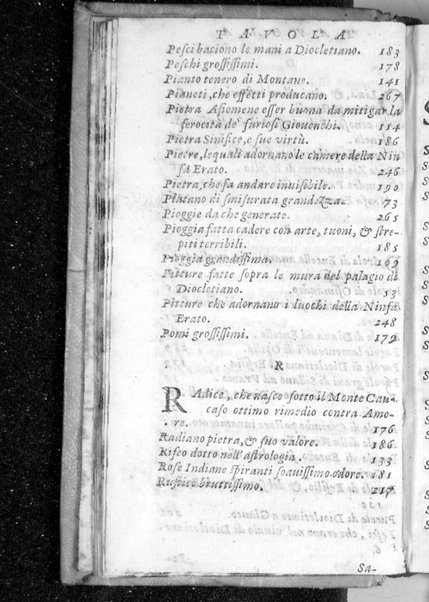 TAVOLA
Pesci baciono le mani a Diocletiano. 183
Peschi grossissimi. 178
Pianto tenero di Montano. 141
Pianeti, che effetti producano. 267
Pietra Asiomene esser buona da mitigar la
ferocità de' furiosi Giovenchi. 114
Pietra Sinifice, e sue virtù. 186
Pietre, lequali adornano le camere della Nin
fa Erato. 246
Pietra, che fa andare invisibile. 190
Platano di smisurata grandezza. 73
Pioggie da che generate. 265
Pioggia fatta cadere con arte, tuoni, & stre-
piti terribili. 185
Pioggia grandissima. 169
Pitture fatte sopra le mura del palagio di
Diocletiano. 53
Pitture che adornano i luochi della Ninfa
Erato. 248
Pomi grossissimi. 179
R
RAdice, che nasce sotto il Monte Cau-
caso ottimo rimedio contra Amo-
re. 176
Radiano pietra, & suo valore. 186
Rifeo dotto nell'astrologia. 133
Rose Indiane spiranti soavissimo odore. 181
Rustico bruttissimo. 217
Sa-